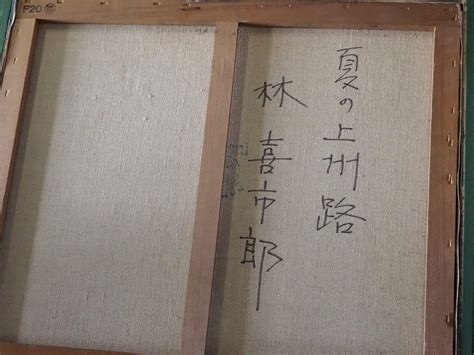 F20
夏の上州路
林 喜市郎